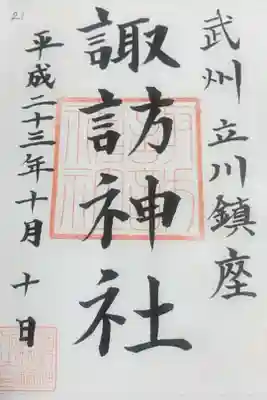 武州立川鎮座
諏訪神社
平成二十三年十月十日
21